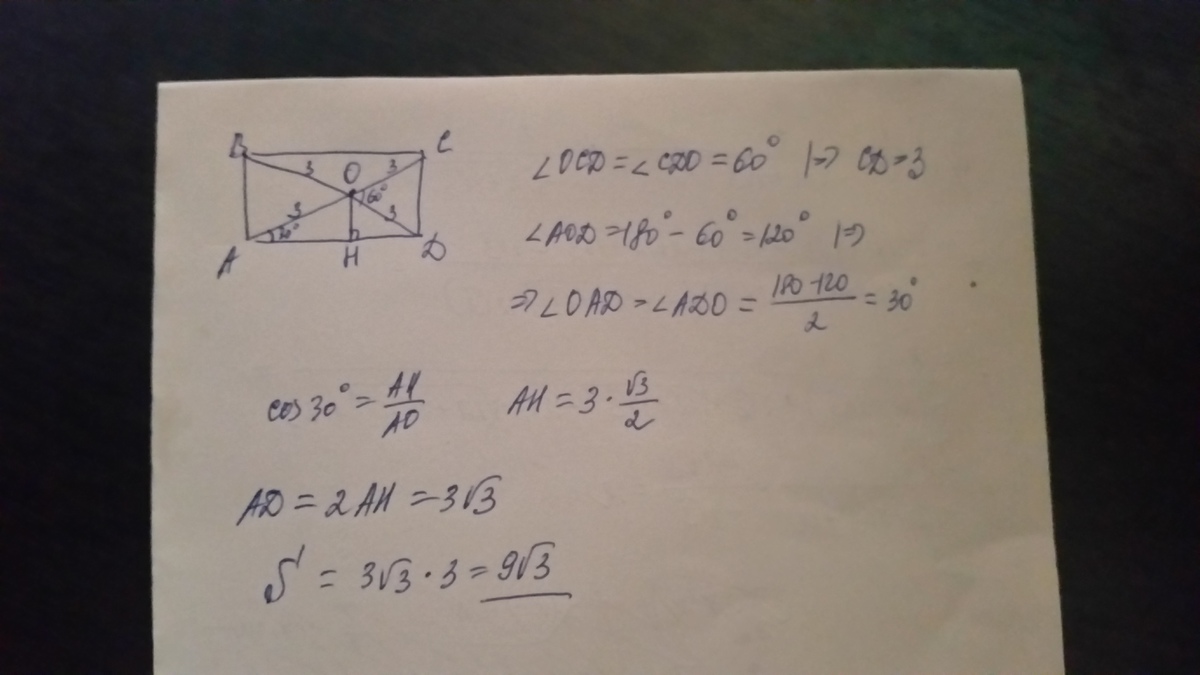 B C
3 O 3
60°
3 3
30°
A H D
∠OCD = ∠CDO = 60° |⇒ CD = 3
∠AOD = 180° - 60° = 120° |⇒
⇒ ∠OAD = ∠ADO = (180-120)/2 = 30°
cos 30° = AH/AO AH = 3 · √3/2
AD = 2AH = 3√3
S = 3√3 · 3 = 9√3